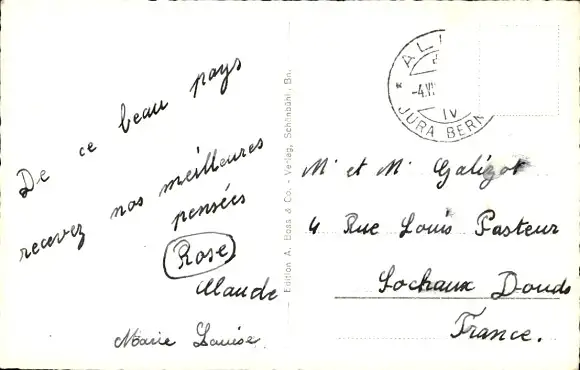 De ce beau pays
recevez nos meilleures
pensées
Rose
Claude
Marie Louise
Edition A. Boss & Co. - Verlag, Schönbühl, Bn.
JURA BERN
IV
M. et M. Galizot
4 Rue Louis Pasteur
Sochaux Doubs
France.